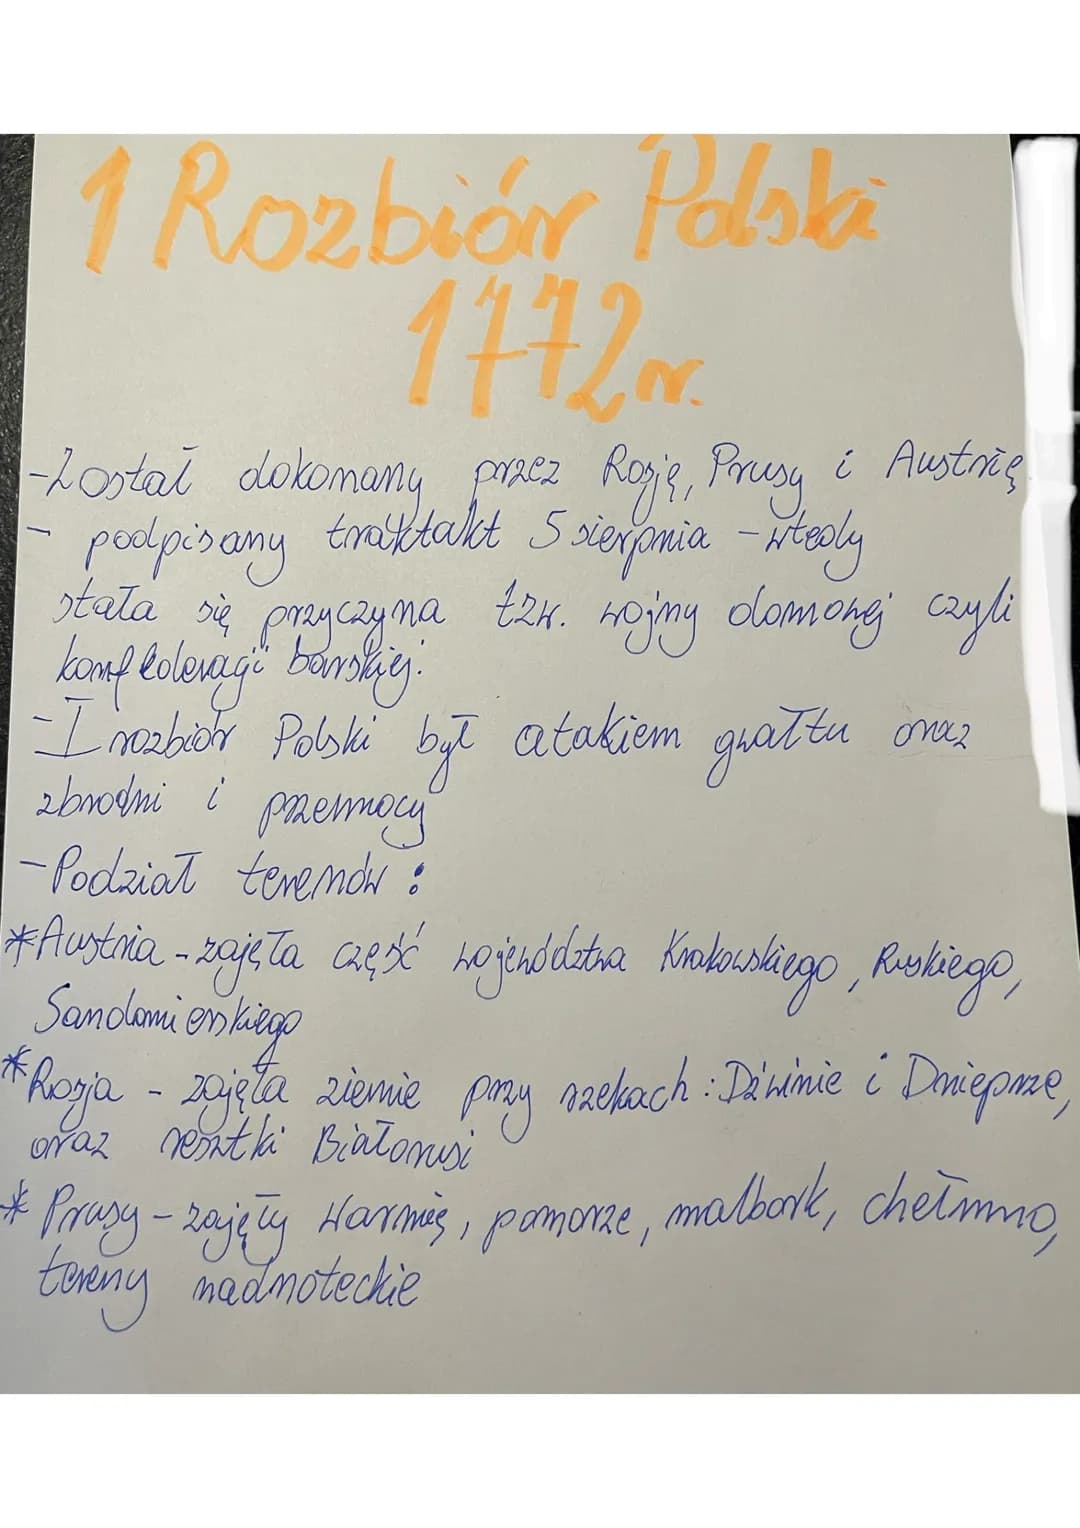 1 Rozbiór Polski
1772r.
-Został dokonany przez Rosję, Prusy i Austrię
- podpisany traktakt 5 sierpnia - wtedy
stała się przyczyna tzw. wojny domowej czyli
konfederacji barskiej.
- I rozbiór Polski był atakiem gwałtu oraz
zbrodni i przemocy
- Podział terenów :
*Austria - zajęła część województwa Krakowskiego, Ruskiego,
Sandomierskiego
*Rosja - zajęła ziemie przy rzekach : Dźwinie i Dnieprze,
oraz resztki Białorusi
* Prusy - zajęły Warmię, pomorze, malbork, chełmno,
tereny nadnoteckie